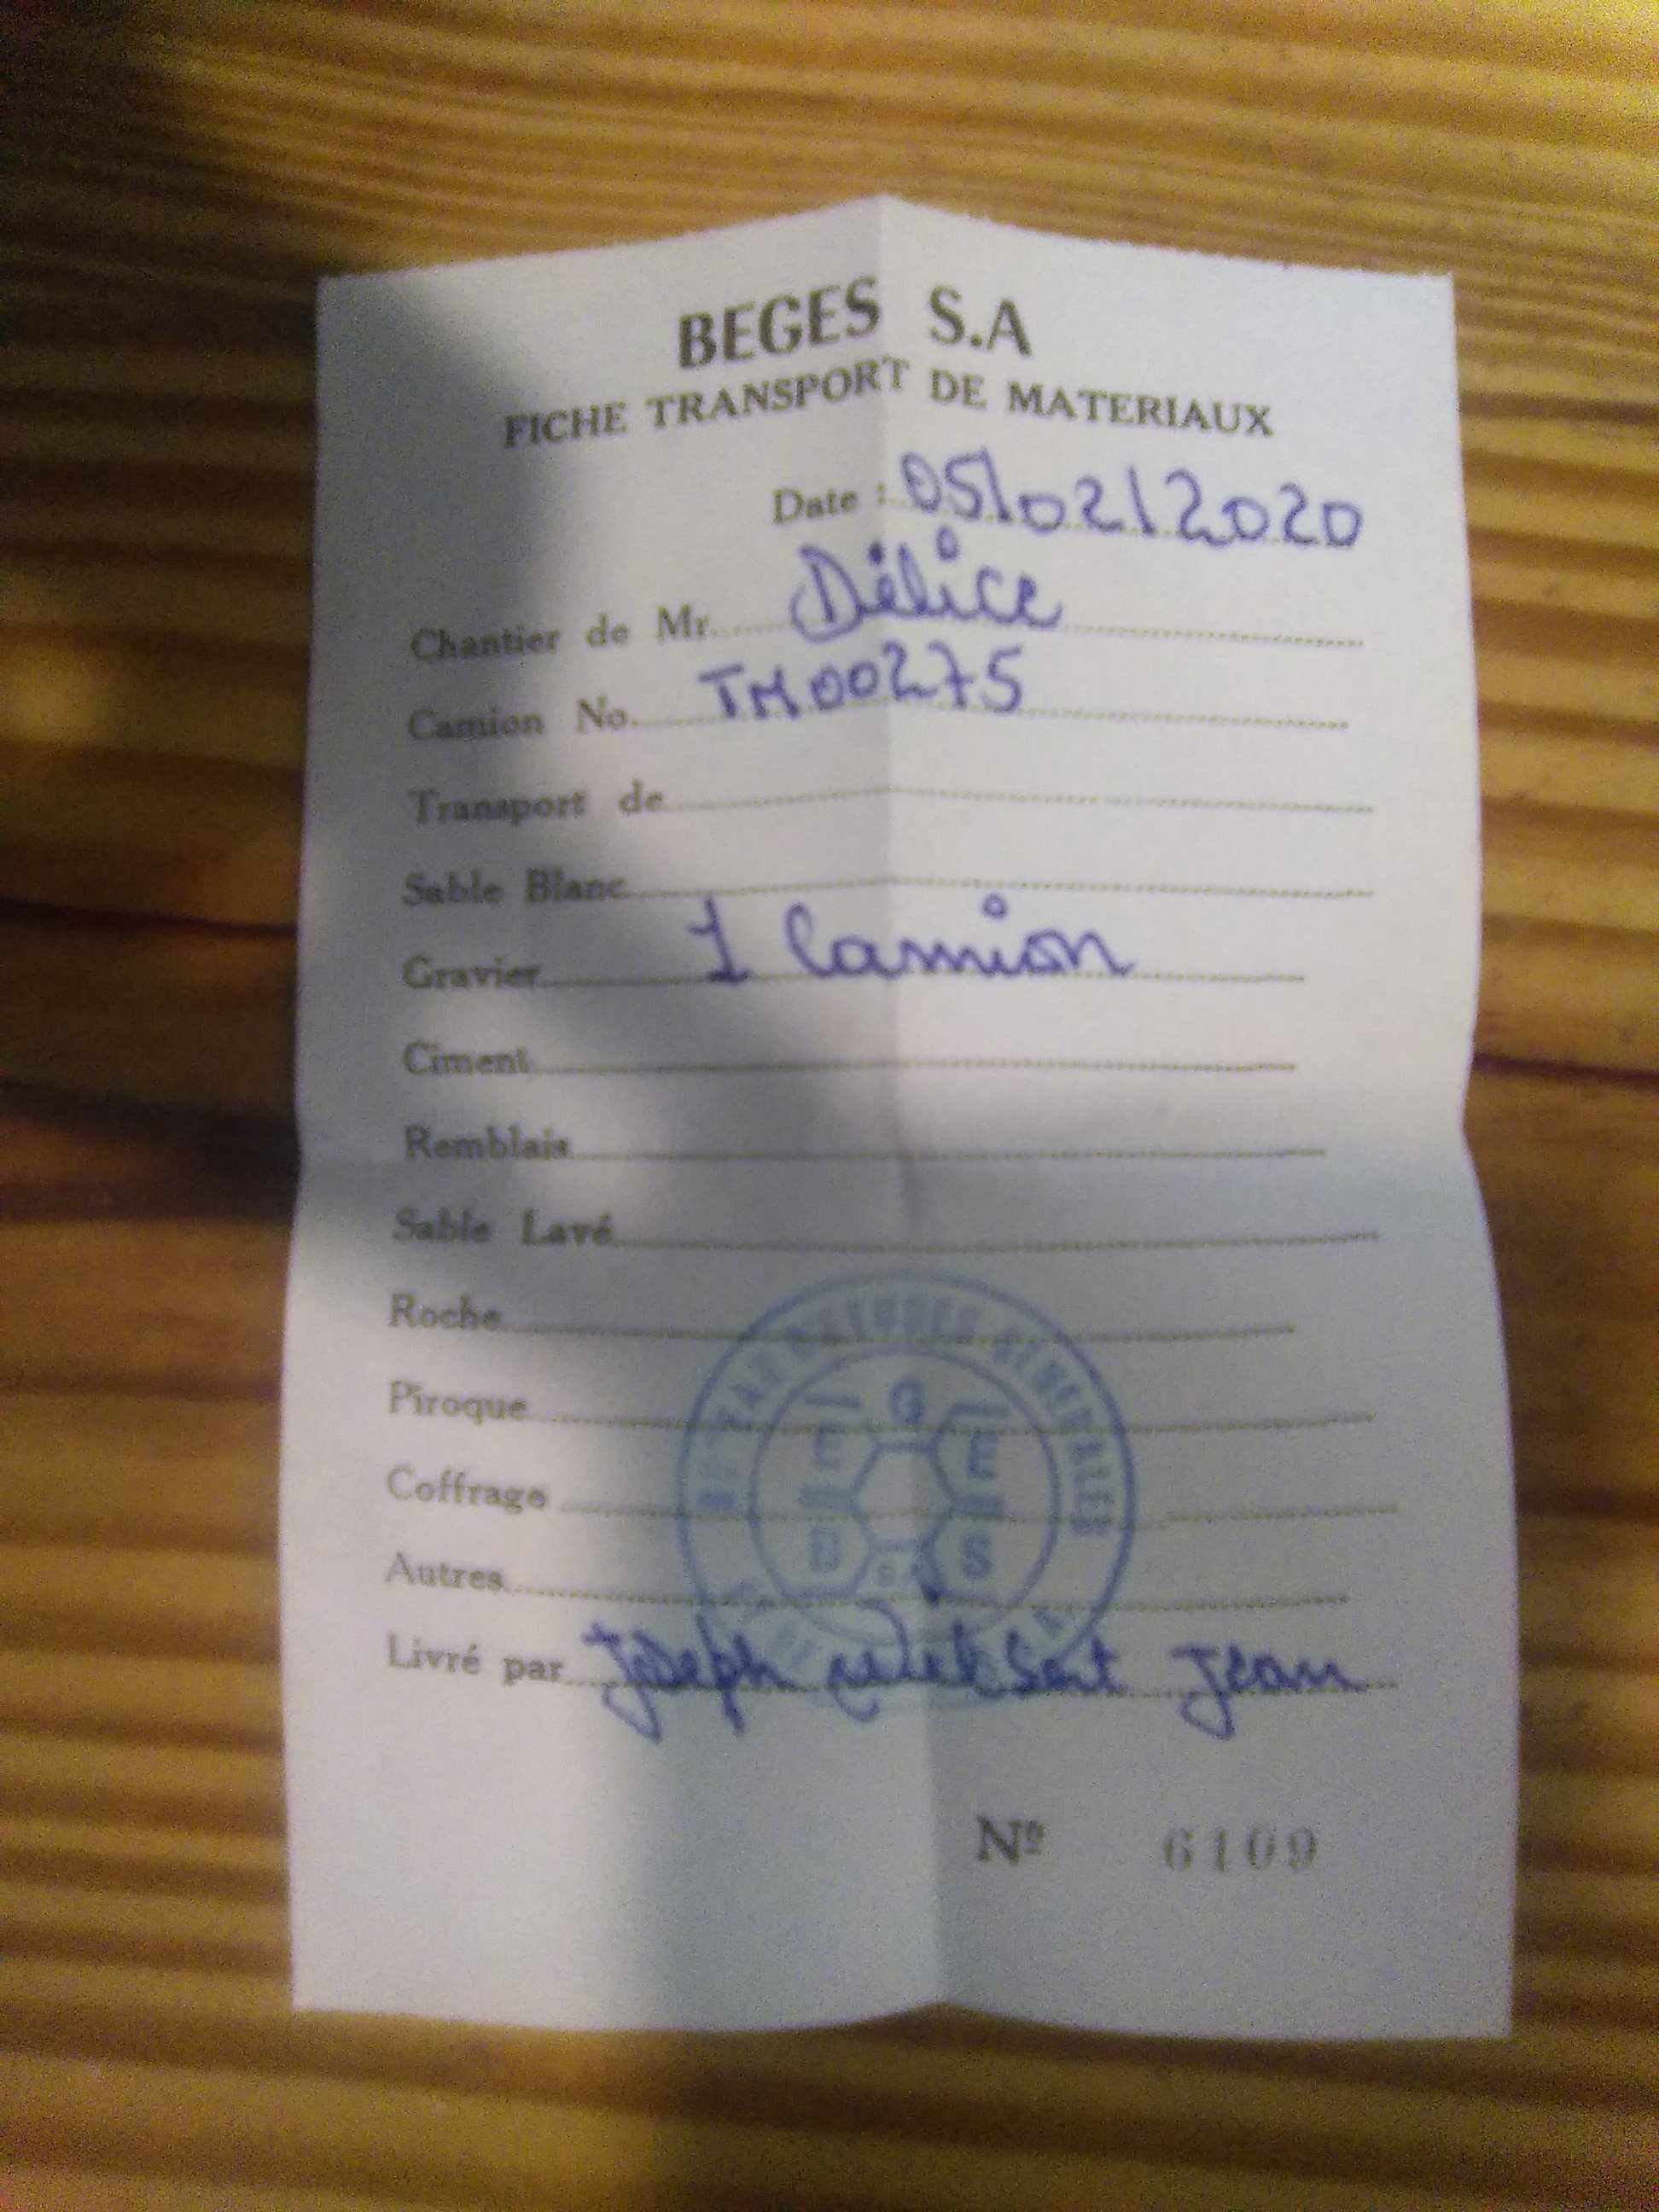 BEGES S.A
FICHE TRANSPORT DE MATERIAUX
Date : 05/02/2020
Chantier de Mr Délice
Camion No. TM00275
Transport de
Sable Blanc
Gravier 1 Camion
Ciment
Remblais
Sable Lavé
Roche
Piroque
Coffrage
Autres
Livré par Joseph Jean
Nº 6109